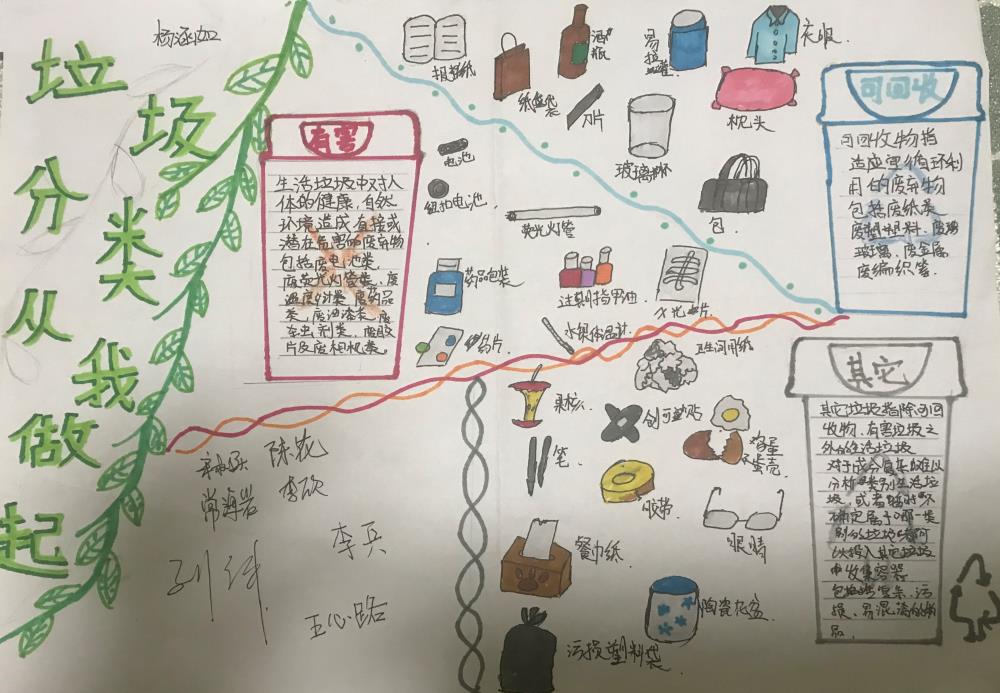 垃圾分类从我做起
杨涵如
有害
生活垃圾中对人
体的健康,自然
环境造成直接或
潜在危害的废弃物
包括废电池类,
废荧光灯管类,废
温度计类,废药品
类,废油漆类,废
杀虫剂类,废胶
片及废相机类。
报纸
纸盒袋
酒瓶
易拉罐
衣服
刀片
玻璃杯
枕头
包
可回收
可回收物指
适应宜循环利
用的废弃物
包括废纸类
废塑塑料,废玻
玻璃,废金属
废编织等.
电池
纽扣电池
荧光灯管
药品包装
药片
过期指甲油
X光片
水银体温计
卫生间用纸
果核
创可贴
鸡蛋
蛋壳
笔
胶带
眼睛
餐巾纸
陶瓷花盆
污损塑料袋
其它
其它垃圾指除可回
收物,有害垃圾之
外的生活垃圾
对于成分复杂难以
分析类别生活垃
圾,或者暂时不
确定属于哪一类
别的垃圾
投入其它垃圾
中收集容器
损、易混淆的物
品.
陈龙
李欣
李兵
王心路